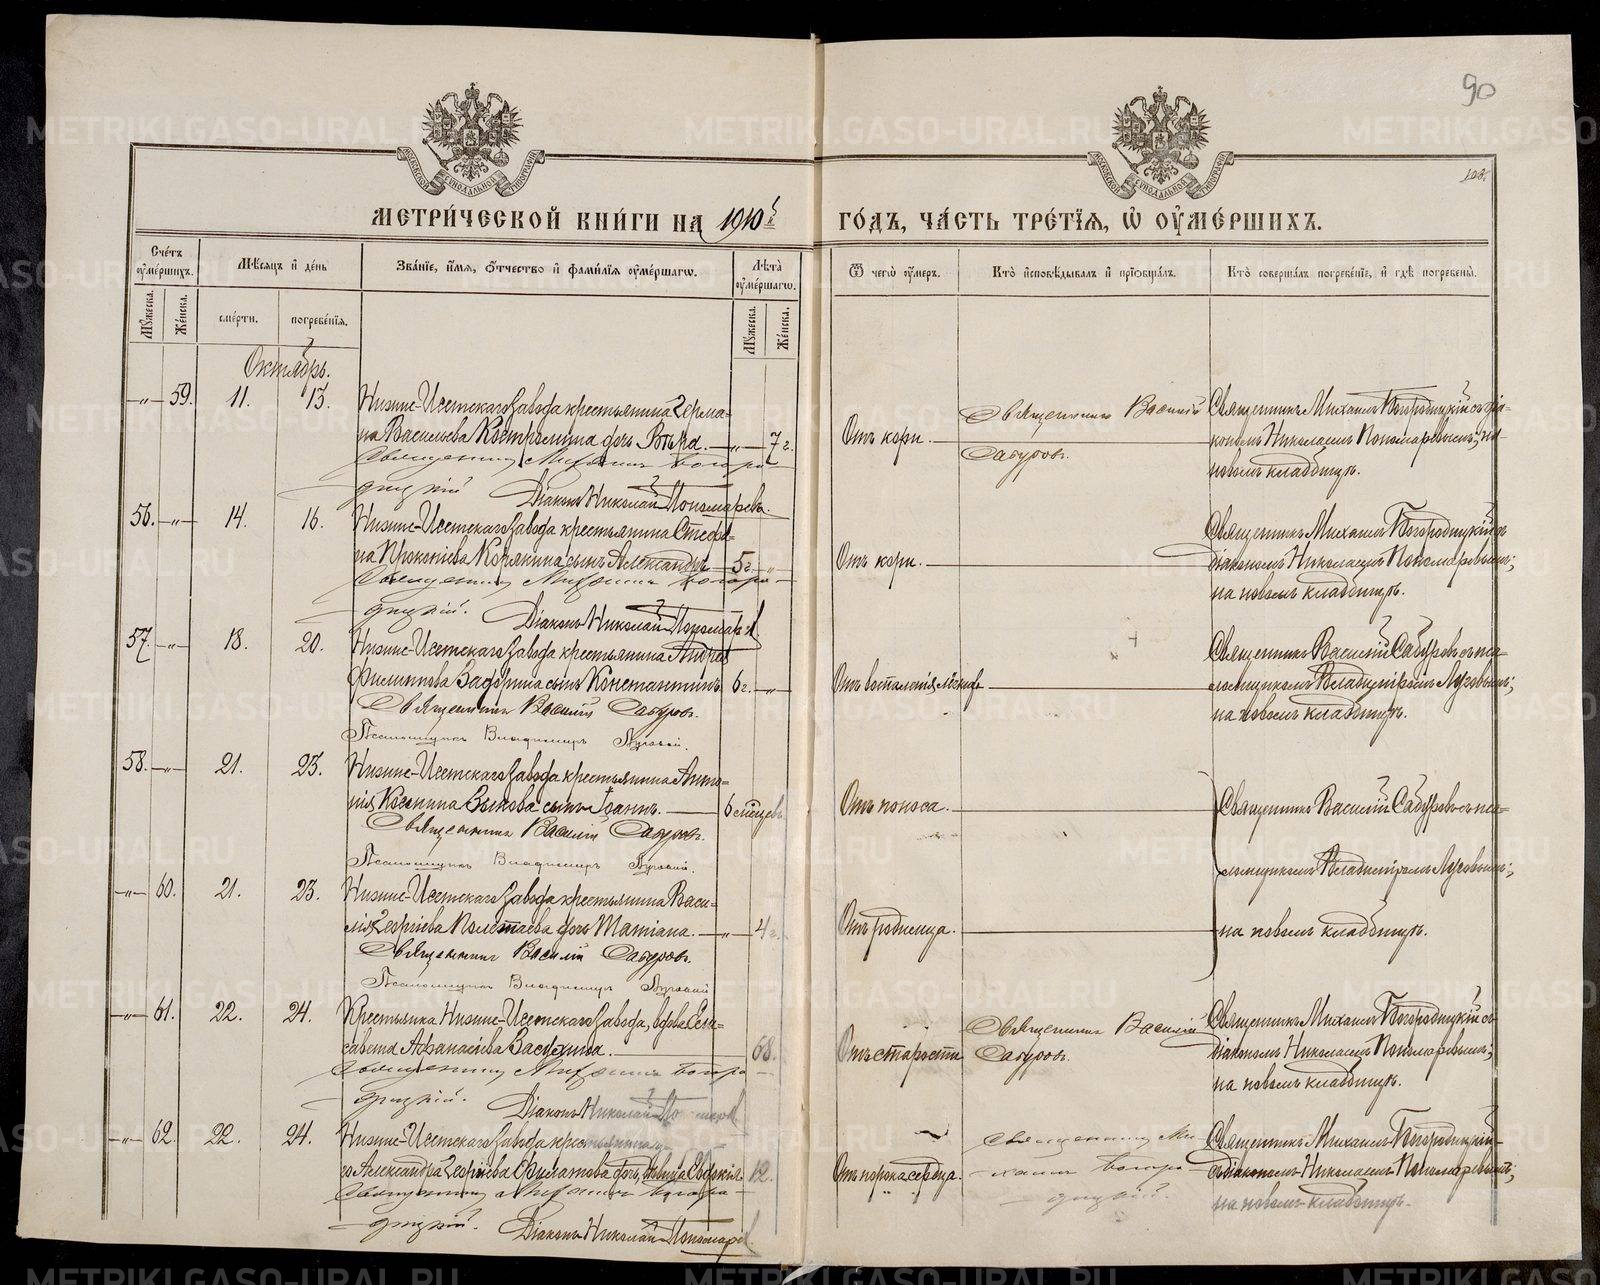 90
МЕТРИ́ЧЕСКОЙ КНИ́ГИ НА 1910й ГО́ДЪ, ЧА́СТЬ ТРЕ́ТІЯ, Ѡ ОУМЕ́РШИХЪ.
Сче́тъ оуме́ршихъ.
Мѣ́сяцъ и де́нь
Зва́ніе, и́мя, о́тчество и фами́лія оуме́ршагѡ.
Лѣ́та оуме́ршагѡ.
Ѿ чегѡ̀ оу́меръ.
Кто̀ исповѣ́дывалъ и пріобща́лъ.
Кто̀ соверша́лъ погребе́ніе, и гдѣ̀ погребены̀.
Му́жеска. Же́нска.
сме́рти. погребе́нія.
Му́жеска. Же́нска.
Октябрь.
-"- 59. 11. 13. Нижне-Исетскаго завода крестьянина Герма-
на Васильева Костромина дочь -"- 7 г.
Священникъ Михаилъ Богоро-
дицкій
Діаконъ Николай Пономаревъ.
Отъ кори.
Священникъ Василій
Сабуровъ.
Священникъ Михаилъ Богородицкій съ діа-
кономъ Николаемъ Пономаревымъ; на
новомъ кладбищѣ.
56. -"- 14. 16. Нижне-Исетскаго завода крестьянина Стефа-
на Прокопіева Корякина сынъ Александръ 5 г. "
Священникъ Михаилъ Богоро-
дицкій.
Діаконъ Николай Пономаревъ
Отъ кори.
Священникъ Михаилъ Богородицкій съ
діакономъ Николаемъ Пономаревымъ;
на новомъ кладбищѣ.
57. -"- 18. 20. Нижне-Исетскаго завода крестьянина Андрея
Филиппова сынъ Константинъ 6 г. -"-
Священникъ Василій Сабуровъ.
Псаломщикъ Владимиръ Луговый.
Отъ воспаленія легкихъ
Священникъ Василій Сабуровъ съ пса-
ломщикомъ Владимиромъ Луговымъ;
на новомъ кладбищѣ.
58. -"- 21. 23. Нижне-Исетскаго завода крестьянина Анто-
нія Козмина Быкова сынъ Іоаннъ. 6 мѣсяцевъ
Священникъ Василій Сабуровъ.
Псаломщикъ Владимиръ Луговый.
Отъ поноса.
Священникъ Василій Сабуровъ съ пса-
ломщикомъ Владимиромъ Луговымъ;
-"- 60. 21. 23. Нижне-Исетскаго завода крестьянина Васи-
лія Георгіева Полетаева дочь Татіана. -"- 4 г.
Священникъ Василій Сабуровъ.
Псаломщикъ Владимиръ Луговый
Отъ родимца.
на новомъ кладбищѣ.
-"- 61. 22. 24. Крестьянка Нижне-Исетскаго завода, вдова Ели-
савета Афанасіева 68.
Священникъ Михаилъ Богоро-
дицкій.
Діаконъ Николай Пономаревъ
Отъ старости
Священникъ Василій
Сабуровъ.
Священникъ Михаилъ Богородицкій съ
діакономъ Николаемъ Пономаревымъ;
на новомъ кладбищѣ.
-"- 62. 22. 24. Нижне-Исетскаго завода крестьянина
Александра Георгіева Филатова дочь, дѣвица Евдокія. 12.
Священникъ Михаилъ Богоро-
дицкій.
Діаконъ Николай Пономаревъ
Отъ порока сердца.
Священникъ Ми-
хаилъ Богоро-
дицкій.
Священникъ Михаилъ Богородицкій
съ діакономъ Николаемъ Пономаревымъ;
на новомъ кладбищѣ.
METRIKI.GASO-URAL.RU